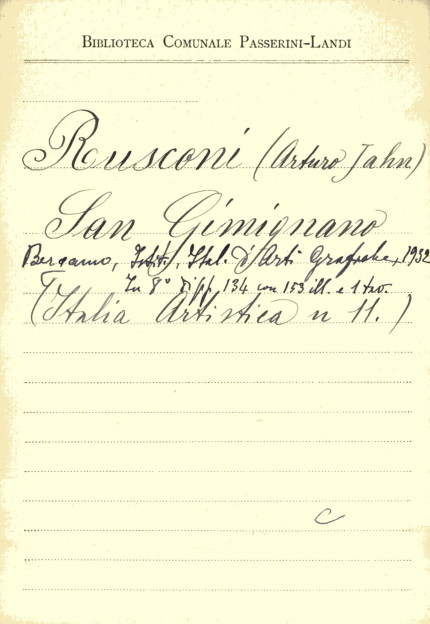 BIBLIOTECA COMUNALE PASSERINI-LANDI
Rusconi (Arturo Jahn)
San Gimignano
Bergamo, Istit. Ital. d'Arti Grafiche, 1932
In 8° di pp. 134 con 153 ill. e 1 tav.
(Italia Artistica n 11.)
C